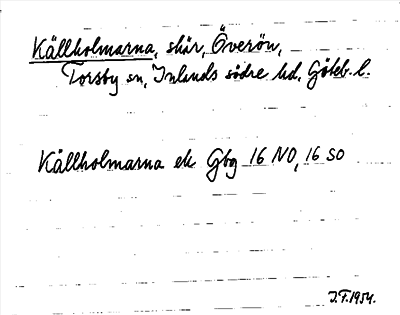 Källholmarna, skär, Överön,
Torsby sn, Inlands södre hd, Göteb. l.
Källholmarna ek Gbg 16 NO, 16 SO
J.F. 1954.